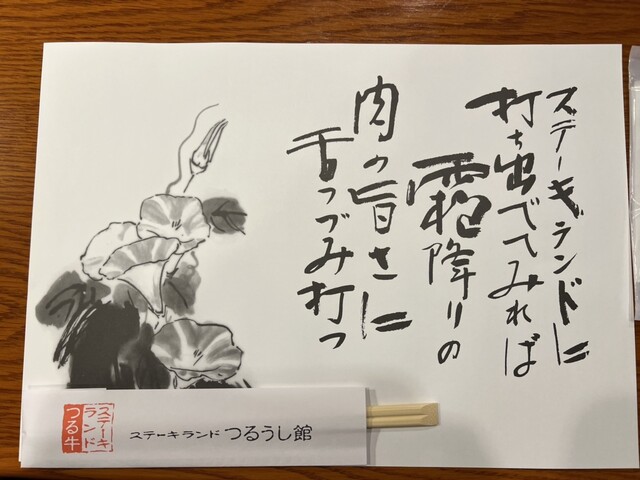 ステーキランドに
打ち出でてみれば
霜降りの
肉の旨さに
舌つづみ打つ
ステーキ
ランド
つる牛
ステーキランド つるうし館